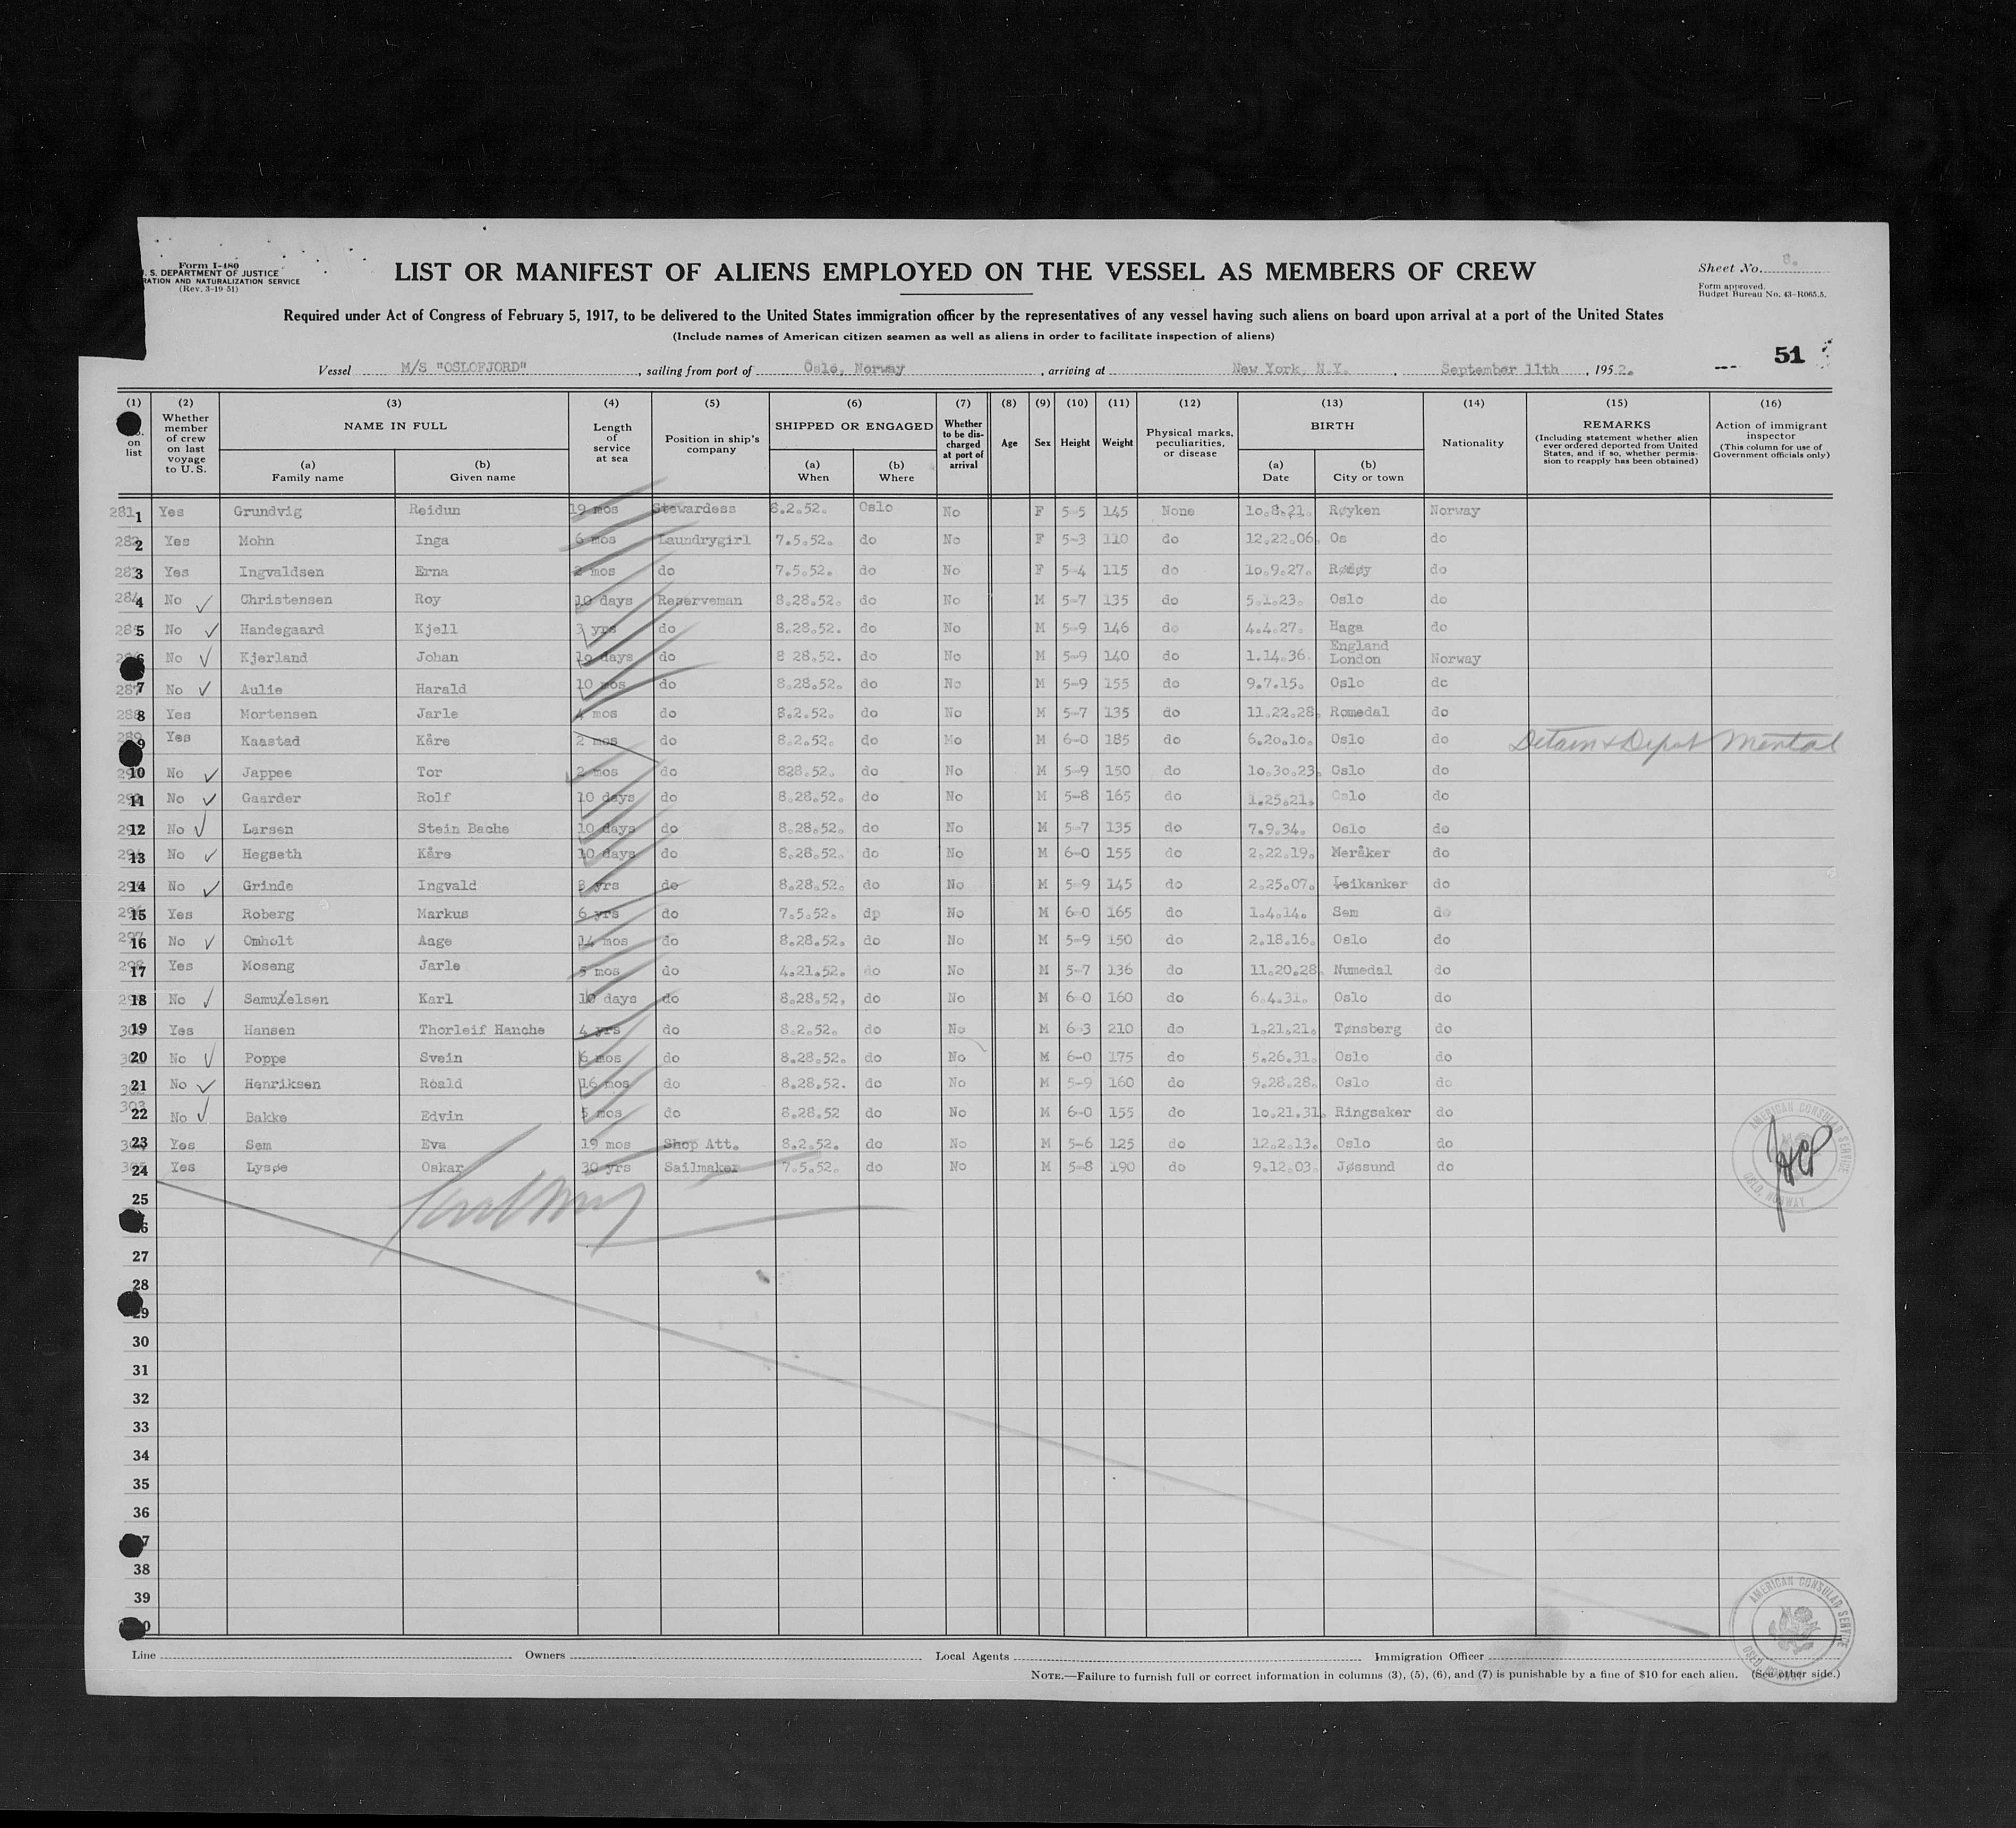 Form I-480
U. S. DEPARTMENT OF JUSTICE
RATION AND NATURALIZATION SERVICE
(Rev. 3-19-51)
LIST OR MANIFEST OF ALIENS EMPLOYED ON THE VESSEL AS MEMBERS OF CREW
Sheet No. 8.
Form approved.
Budget Bureau No. 43-R065.5.
Required under Act of Congress of February 5, 1917, to be delivered to the United States immigration officer by the representatives of any vessel having such aliens on board upon arrival at a port of the United States
(Include names of American citizen seamen as well as aliens in order to facilitate inspection of aliens)
51
Vessel M/S "OSLOFJORD", sailing from port of Oslo, Norway, arriving at New York, N.Y., September 11th, 1952.
(1) (2) (3) (4) (5) (6) (7) (8) (9) (10) (11) (12) (13) (14) (15) (16)
on list
Whether member of crew on last voyage to U.S.
NAME IN FULL
(a) Family name
(b) Given name
Length of service at sea
Position in ship's company
SHIPPED OR ENGAGED
(a) When
(b) Where
Whether to be discharged at port of arrival
Age
Sex
Height
Weight
Physical marks, peculiarities, or disease
BIRTH
(a) Date
(b) City or town
Nationality
REMARKS
(Including statement whether alien ever ordered deported from United States, and if so, whether permission to reapply has been obtained)
Action of immigrant inspector
(This column for use of Government officials only)
281 1 Yes Grundvig Reidun 19 mos Stewardess 8.2.52. Oslo No F 5-5 145 None 10.8.21. Røyken Norway
282 2 Yes Mohn Inga 6 mos Laundrygirl 7.5.52. do No F 5-3 110 do 12.22.06. Os do
283 3 Yes Ingvaldsen Erna 2 mos do 7.5.52. do No F 5-4 115 do 10.9.27. Rødøy do
284 4 No Christensen Roy 10 days Reserveman 8.28.52. do No M 5-7 135 do 5.1.23. Oslo do
285 5 No Handegaard Kjell 3 yrs do 8.28.52. do No M 5-9 146 do 4.4.27. Haga do
6 No Kjerland Johan 10 days do 8 28.52. do No M 5-9 140 do 1.14.36. England London Norway
287 7 No Aulie Harald 10 mos do 8.28.52. do No M 5-9 155 do 9.7.15. Oslo do
288 8 Yes Mortensen Jarle 4 mos do 8.2.52. do No M 5-7 135 do 11.22.28. Romedal do
289 9 Yes Kaastad Kåre 2 mos do 8.2.52. do Mo M 6-0 185 do 6.20.10. Oslo do Detain & Deport Mental
10 No Jappee Tor 2 mos do 828.52. do No M 5-9 150 do 10.30.23. Oslo do
11 No Gaarder Rolf 10 days do 8.28.52. do No M 5-8 165 do 1.25.21. Oslo do
12 No Larsen Stein Bache 10 days do 8.28.52. do No M 5-7 135 do 7.9.34. Oslo do
13 No Hegseth Kåre 10 days do 8.28.52. do No M 6-0 155 do 2.22.19. Meråker do
14 No Grinde Ingvald 8 yrs do 8.28.52. do No M 5-9 145 do 2.25.07. Leikanker do
15 Yes Roberg Markus 6 yrs do 7.5.52. dp No M 6-0 165 do 1.4.14. Sem do
297 16 No Omholt Aage 14 mos do 8.28.52. do No M 5-9 150 do 2.18.16. Oslo do
298 17 Yes Moseng Jarle 5 mos do 4.21.52. do No M 5-7 136 do 11.20.28. Numedal do
18 No Samuelsen Karl 10 days do 8.28.52. do No M 6-0 160 do 6.4.31. Oslo do
19 Yes Hansen Thorleif Hanche 4 yrs do 8.2.52. do No M 6-3 210 do 1.21.21. Tønsberg do
20 No Poppe Svein 6 mos do 8.28.52. do No M 6-0 175 do 5.26.31. Oslo do
21 No Henriksen Roald 16 mos do 8.28.52. do No M 5-9 160 do 9.28.28. Oslo do
303 22 No Bakke Edvin 5 mos do 8.28.52 do No M 6-0 155 do 10.21.31. Ringsaker do
23 Yes Sem Eva 19 mos Shop Att. 8.2.52. do No M 5-6 125 do 12.2.13. Oslo do
24 Yes Lysøe Oskar 30 yrs Sailmaker 7.5.52. do No M 5-8 190 do 9.12.03. Jøssund do
AMERICAN CONSULAR SERVICE
OSLO, NORWAY
25
27
28
29
30
31
32
33
34
35
36
38
39
AMERICAN CONSULAR SERVICE
OSLO, NORWAY
Line Owners Local Agents Immigration Officer
NOTE.—Failure to furnish full or correct information in columns (3), (5), (6), and (7) is punishable by a fine of $10 for each alien. (See other side.)